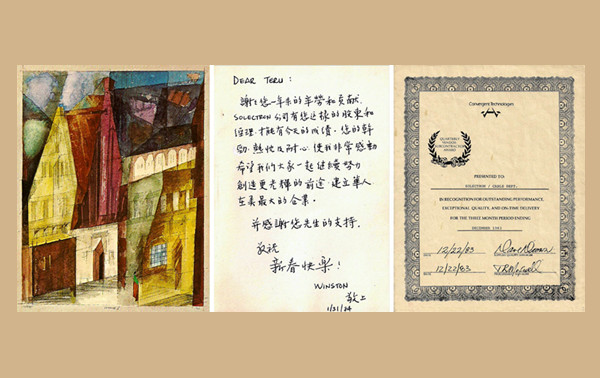 DEAR TERU :
謝謝您一年來的辛勞和貢献.
SOLECTRON 公司有您這樣的股東和
經理才能有今天的成績。您的幹
勁, 熱忱及耐心, 使我非常感動
希望我們大家一起继續努力
創造更光輝的前途. 建立華人
在美最大的企業.
並感謝您先生的支持.
敬祝
新春快樂!
WINSTON
敬上
1/31/84
Convergent Technologies
QUARTERLY
VENDOR
SUBCONTRACTOR
AWARD
PRESENTED TO:
SOLECTRON / CABLE DEPT.
IN RECOGNITION FOR OUTSTANDING PERFORMANCE,
EXCEPTIONAL QUALITY, AND ON-TIME DELIVERY
FOR THE THREE MONTH PERIOD ENDING
DECEMBER 1983
12/22/83
12/22/83